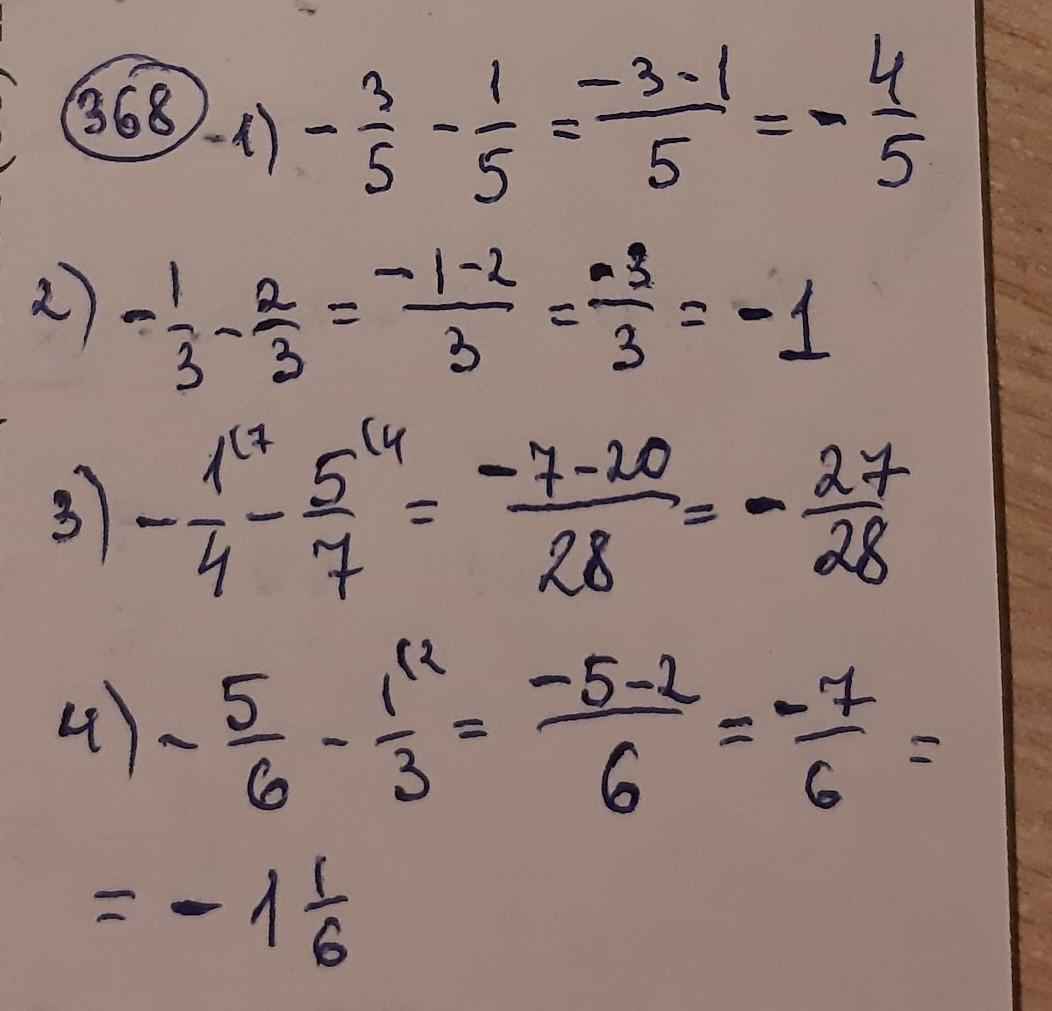 368 1) - 3/5 - 1/5 = (-3-1)/5 = - 4/5
2) - 1/3 - 2/3 = (-1-2)/3 = -3/3 = -1
3) - 1(7/4 - 5(4/7 = (-7-20)/28 = - 27/28
4) - 5/6 - 1(2/3 = (-5-2)/6 = -7/6 =
= - 1 1/6